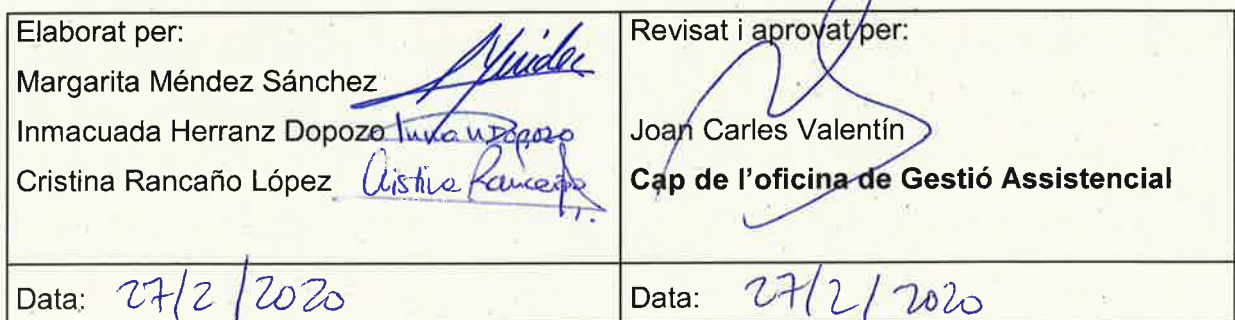 Elaborat per:
Margarita Méndez Sánchez
Inmacuada Herranz Dopozo
Cristina Rancaño López Cristina Rancaño
Data: 27/2/2020
Revisat i aprovat per:
Joan Carles Valentín
Cap de l'oficina de Gestió Assistencial
Data: 27/2/2020